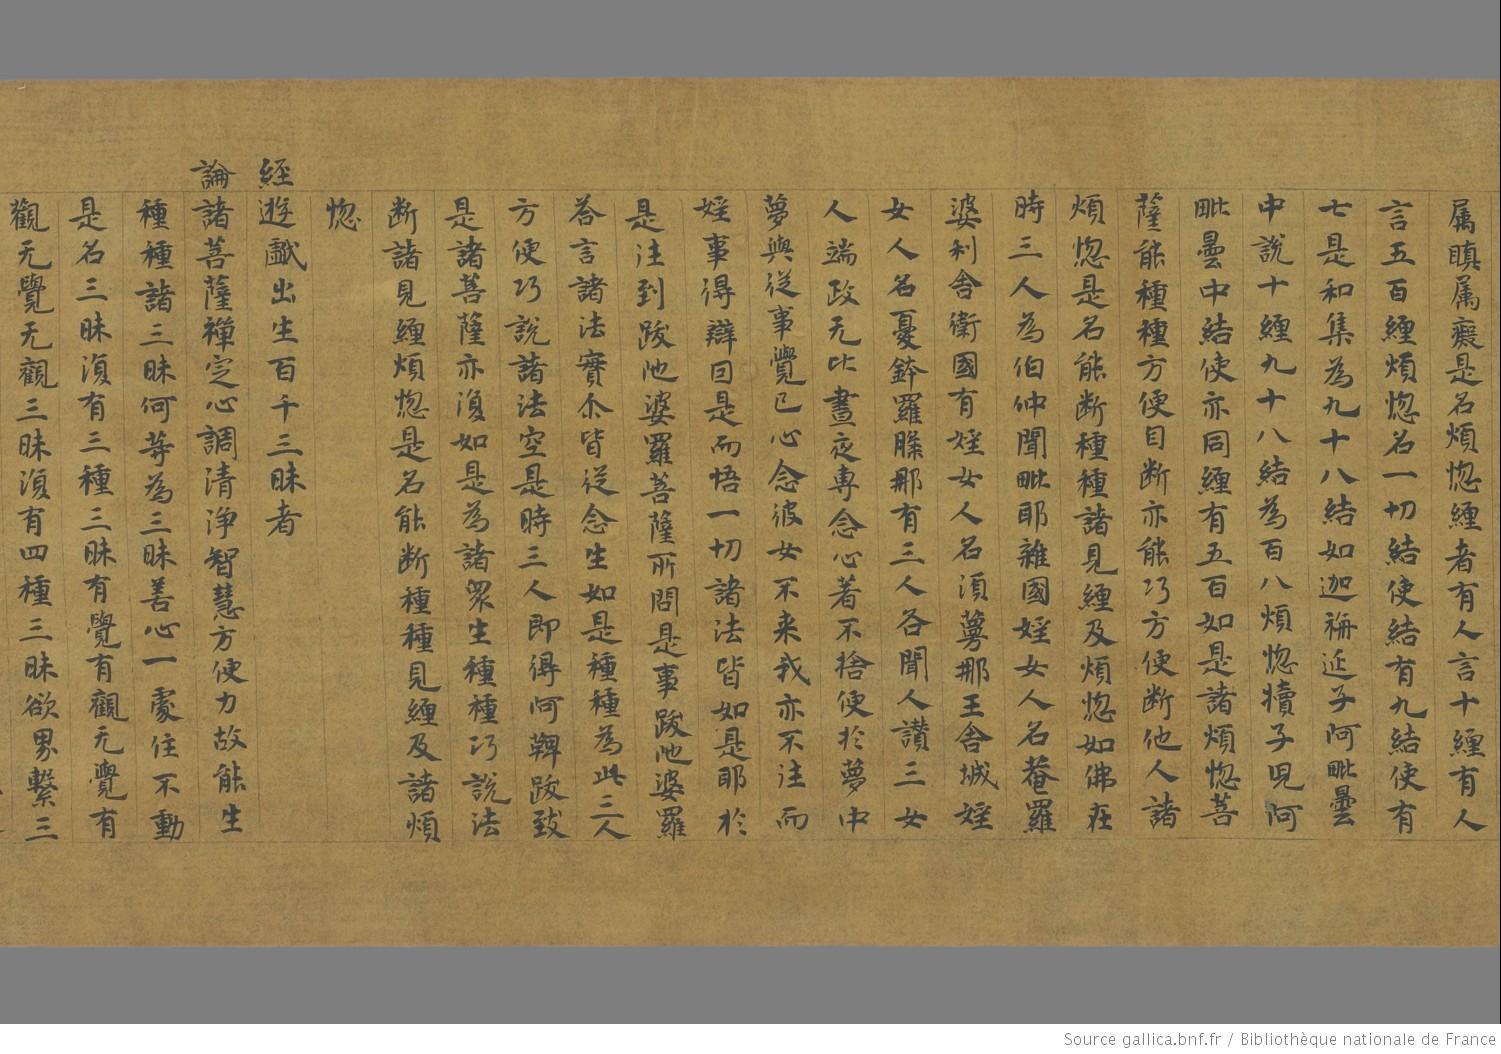 属瞋属癡是名煩惚纏者有人言十纏有人
言五百纏煩惚名一切結使結有九結使有
七是和集為九十八結如迦旃延子阿毗曇
中說十纏九十八結為百八煩惚犢子児阿
毗曇中結使亦同纏有五百如是諸煩惚菩
薩能種種方便自断亦能巧方便断他人諸
煩惚是名能断種種諸見纏及煩惚如佛在
時三人為伯仲聞毗耶離國婬女人名菴羅
婆利舍衛國有婬女人名湏蔓那王舍城婬
女人名憂鉢羅槃那有三人各聞人讃三女
人端政无比晝夜專念心著不捨便於夢中
夢與従事覺已心念彼女不来我亦不往而
婬事得辯因是而悟一切諸法皆如是耶於
是往到跋陁婆羅菩薩所問是事跋陁婆羅
荅言諸法實尒皆従念生如是種種為此三人
方便巧說諸法空是時三人即得阿鞞跋致
是諸菩薩亦復如是為諸衆生種種巧說法
断諸見纏煩惚是名能断種種見纏及諸煩
惚
經遊戲出生百千三昧者
論諸菩薩禪定心調清淨智慧方便力故能生
種種諸三昧何等為三昧善心一處住不動
是名三昧復有三種三昧有覺有觀无覺有
觀无覺无觀三昧復有四種三昧欲界繫三
Source gallica.bnf.fr / Bibliothèque nationale de France